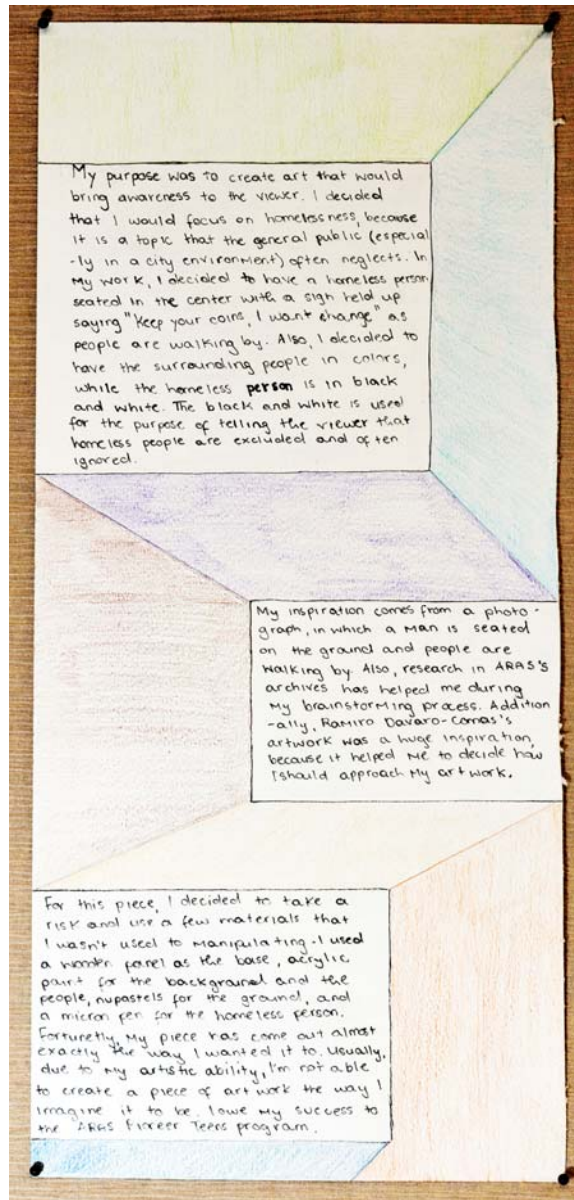 My purpose was to create art that would
bring awareness to the viewer. I decided
that I would focus on homelessness, because
it is a topic that the general public (especial
-ly in a city environment) often neglects. In
My work, I decided to have a homeless person
seated in the center with a sign held up
saying "Keep your coins, I want change" as
people are walking by. Also, I decided to
have the surrounding people in colors,
while the homeless person is in black
and white. The black and white is used
for the purpose of telling the viewer that
homeless people are excluded and often
ignored.
My inspiration comes from a photo-
graph, in which a man is seated
on the ground and people are
walking by. Also, research in ARAS's
archives has helped me during
my brainstorming process. Addition
-ally, Ramiro Davaro-Comas's
artwork was a huge inspiration,
because it helped me to decide how
I should approach my artwork.
For this piece, I decided to take a
risk and use a few materials that
I wasn't used to manipulating. I used
a wooden panel as the base, acrylic
paint for the background and the
people, nupastels for the ground, and
a micron pen for the homeless person.
Fortunetly, my piece has come out almost
exactly the way I wanted it to. Usually,
due to my artistic ability, I'm not able
to create a piece of artwork the way I
imagine it to be. I owe my success to
the ARAS Pioneer Teens program.